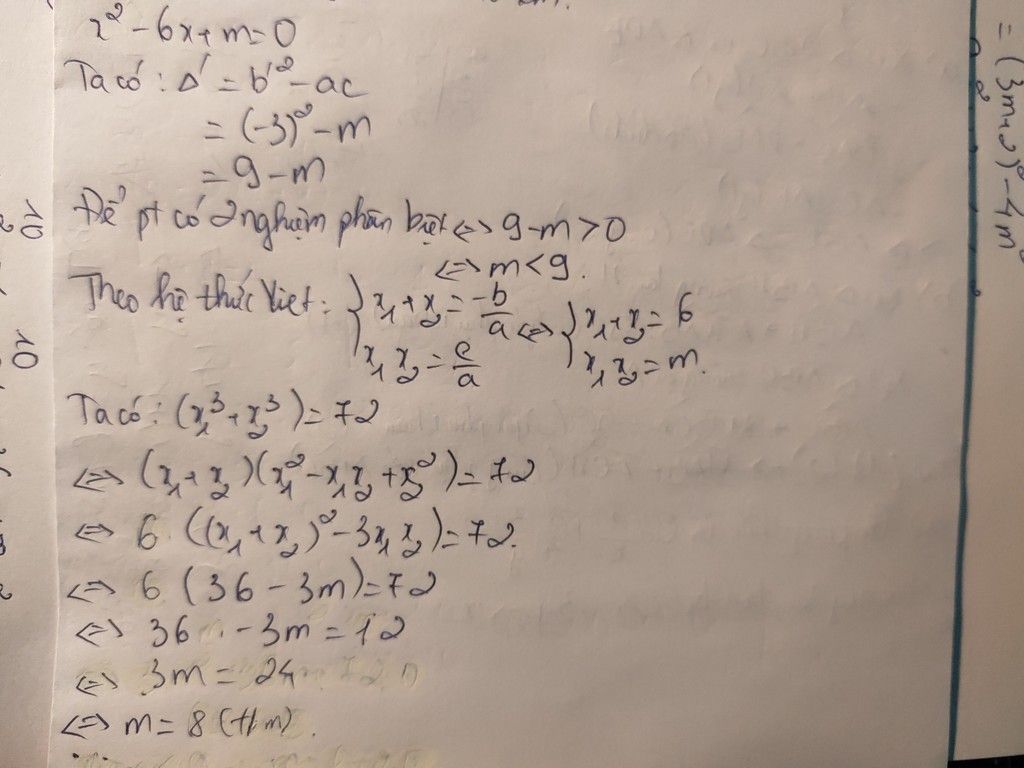 x² - 6x + m = 0
Ta có : Δ' = b'² - ac
= (-3)² - m
= 9 - m
Để pt có 2 nghiệm phân biệt <=> 9 - m > 0
<=> m < 9.
Theo hệ thức Viet : { x₁ + x₂ = -b/a <=> { x₁ + x₂ = 6
x₁ x₂ = c/a x₁ x₂ = m.
Ta có : (x₁³ + x₂³) = 72
<=> (x₁ + x₂)(x₁² - x₁x₂ + x₂²) = 72
<=> 6 ((x₁ + x₂)² - 3x₁x₂) = 72.
<=> 6 (36 - 3m) = 72
<=> 36 - 3m = 12
<=> 3m = 24
<=> m = 8 (t/m).
= (3m+2)² - 4m
10
10